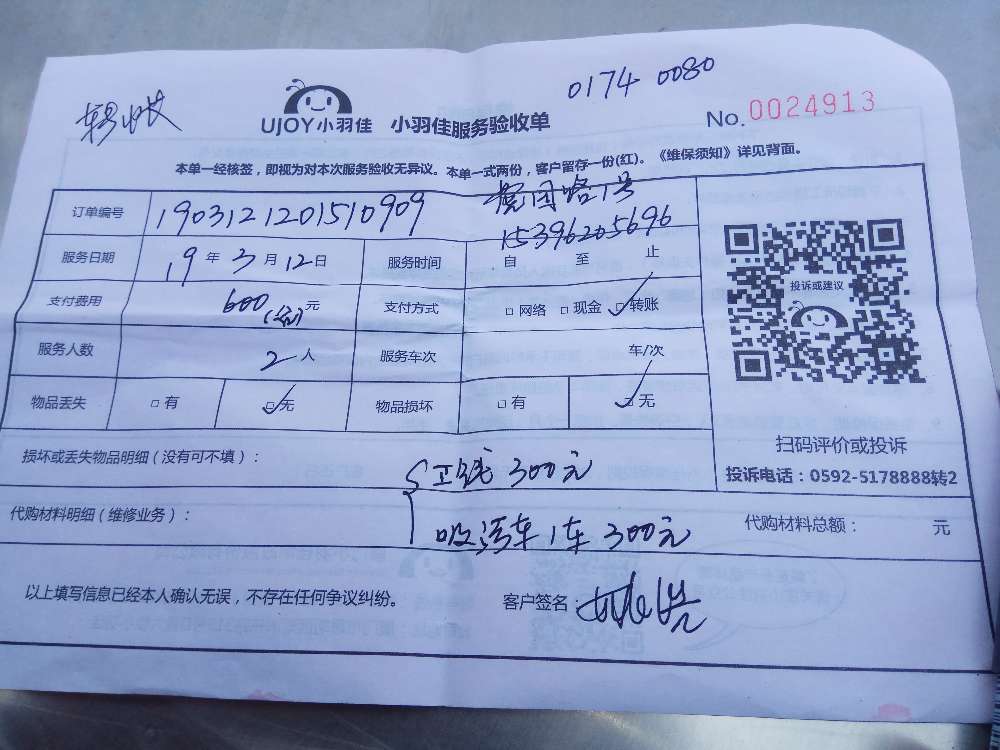 0174 0080
UJOY小羽佳 小羽佳服务验收单
No.0024913
本单一经核签，即视为对本次服务验收无异议。本单一式两份，客户留存一份(红)。《维保须知》详见背面。
订单编号 1903121201510909
园路1号
15396205696
服务日期 19年3月12日 服务时间 自 至 止
支付费用 600 元 支付方式 □网络 □现金 ☑转账
服务人数 2人 服务车次 车/次
物品丢失 □有 ☑无 物品损坏 □有 ☑无
投诉或建议
扫码评价或投诉
投诉电话：0592-5178888转2
损坏或丢失物品明细（没有可不填）： 工钱300元
代购材料明细（维修业务）： 吸污车1车300元
代购材料总额： 元
以上填写信息已经本人确认无误，不存在任何争议纠纷。 客户签名：